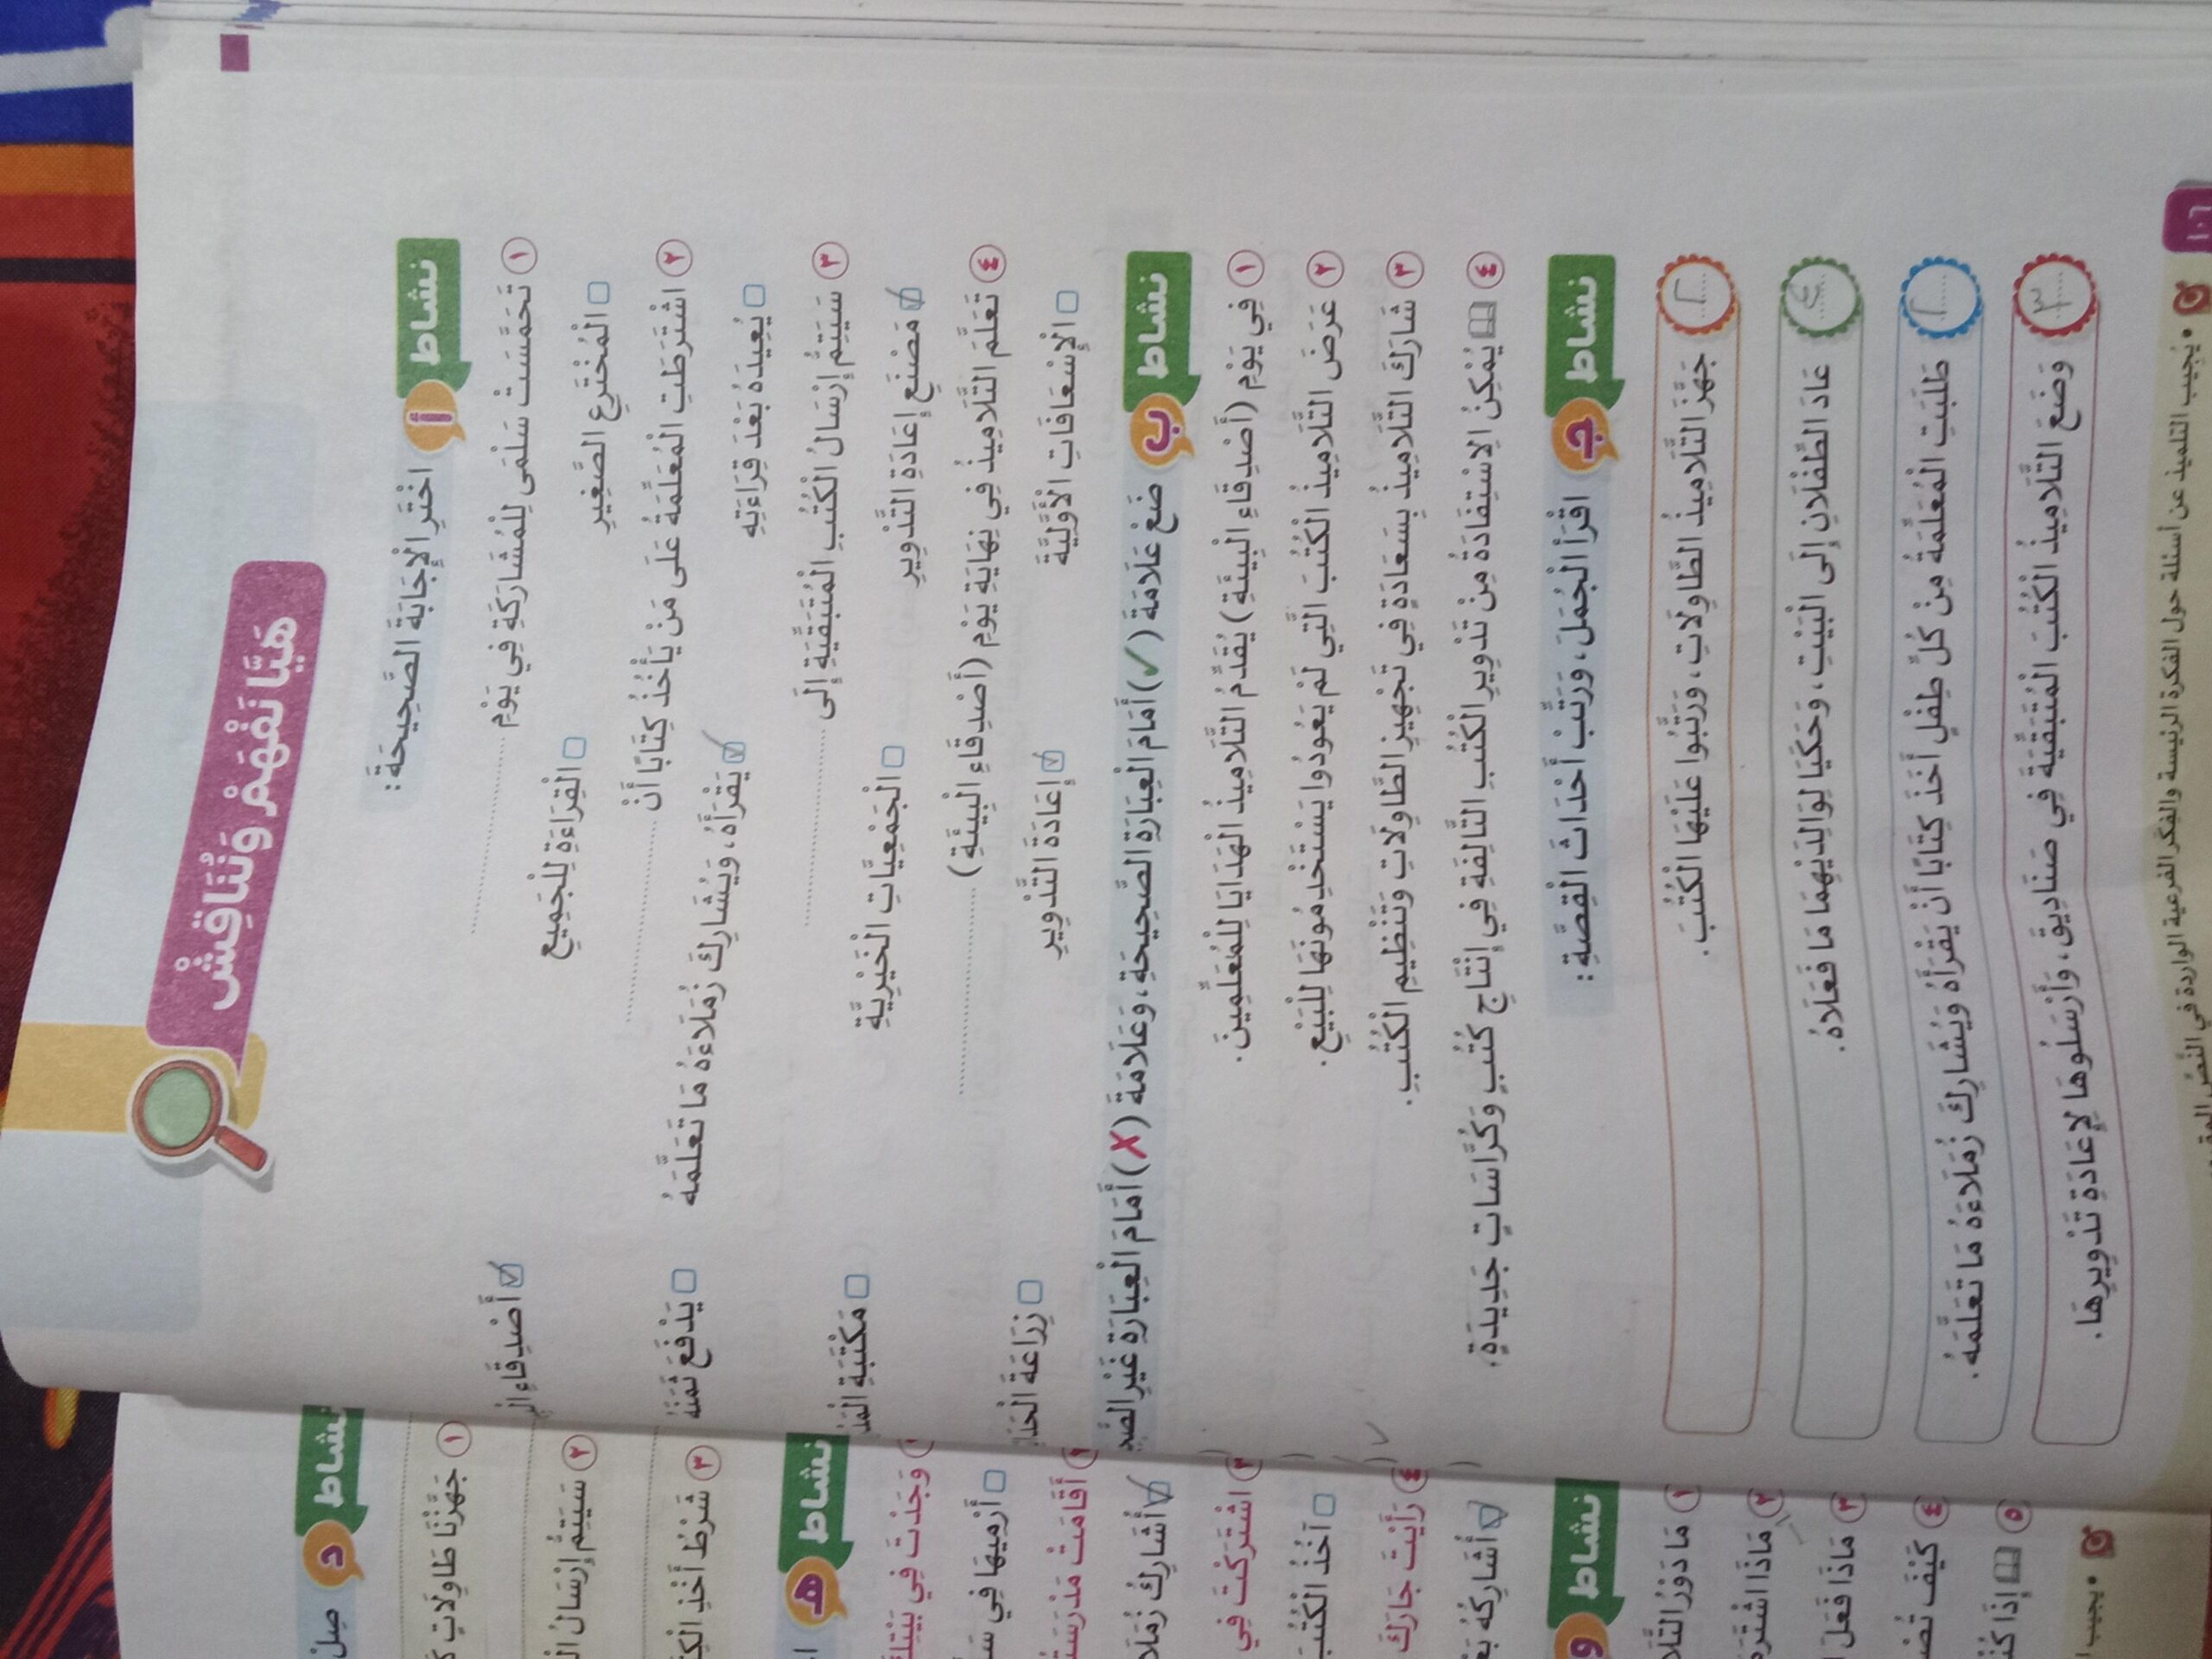 هَيَّا نَفْهَمْ وَنُنَاقِشْ
نشاط أ اخْتَرِ الْإِجَابَةَ الصَّحِيحَةَ :
١ تَحَمَّسَتْ سَلْمَى لِلْمُشَارَكَةِ فِي يَوْمِ ..........
الْمُخْتَرِعِ الصَّغِيرِ الْقِرَاءَةِ لِلْجَمِيعِ أَصْدِقَاءِ
٢ اشْتَرَطَتِ الْمُعَلِّمَةُ عَلَى مَنْ يَأْخُذُ كِتَابًا أَنْ ..........
يُعِيدَهُ بَعْدَ قِرَاءَتِهِ يَقْرَأَهُ، وَيُشَارِكَ زُمَلَاءَهُ مَا تَعَلَّمَهُ يَدْفَعَ ثَمَنَهُ
٣ سَيَتِمُّ إِرْسَالُ الْكُتُبِ الْمُتَبَقِّيَةِ إِلَى ..........
مَصْنَعِ إِعَادَةِ التَّدْوِيرِ الْجَمْعِيَّاتِ الْخَيْرِيَّةِ مَكْتَبَةِ
٤ تَعَلَّمَ التَّلَامِيذُ فِي نِهَايَةِ يَوْمِ (أَصْدِقَاءِ الْبِيئَةِ) ..........
الْإِسْعَافَاتِ الْأَوَّلِيَّةَ إِعَادَةَ التَّدْوِيرِ زِرَاعَةَ
نشاط ب ضَعْ عَلَامَةَ (✓) أَمَامَ الْعِبَارَةِ الصَّحِيحَةِ، وَعَلَامَةَ (✗) أَمَامَ الْعِبَارَةِ غَيْرِ
١ فِي يَوْمِ (أَصْدِقَاءِ الْبِيئَةِ) يُقَدِّمُ التَّلَامِيذُ الْهَدَايَا لِلْمُعَلِّمِينَ.
٢ عَرَضَ التَّلَامِيذُ الْكُتُبَ الَّتِي لَمْ يَعُودُوا يَسْتَخْدِمُونَهَا لِلْبَيْعِ.
٣ شَارَكَ التَّلَامِيذُ بِسَعَادَةٍ فِي تَجْهِيزِ الطَّاوِلَاتِ وَتَنْظِيمِ الْكُتُبِ.
٤ يُمْكِنُ الِاسْتِفَادَةُ مِنْ تَدْوِيرِ الْكُتُبِ التَّالِفَةِ فِي إِنْتَاجِ كُتُبٍ وَكُرَّاسَاتٍ جَدِيدَةٍ.
نشاط جـ اقْرَأِ الْجُمَلَ، وَرَتِّبْ أَحْدَاثَ الْقِصَّةِ :
جَهَّزَ التَّلَامِيذُ الطَّاوِلَاتِ، وَرَتَّبُوا عَلَيْهَا الْكُتُبَ.
٤ عَادَ الطِّفْلَانِ إِلَى الْبَيْتِ، وَحَكَيَا لِوَالِدَيْهِمَا مَا فَعَلَاهُ.
طَلَبَتِ الْمُعَلِّمَةُ مِنْ كُلِّ طِفْلٍ أَخَذَ كِتَابًا أَنْ يَقْرَأَهُ وَيُشَارِكَ زُمَلَاءَهُ مَا تَعَلَّمَهُ.
٣ وَضَعَ التَّلَامِيذُ الْكُتُبَ الْمُتَبَقِّيَةَ فِي صَنَادِيقَ، وَأَرْسَلُوهَا لِإِعَادَةِ تَدْوِيرِهَا.
١٠٦
• يُجيب التلميذ عن أسئلة حول الفكرة الرئيسة والفِكَر الفرعية الواردة في النَّص
نشاط د صِلْ
١ جَهَّزْنَا طَاوِلَاتٍ
٢ سَيَتِمُّ إِرْسَالُ
٣ شَرْطُ أَخْذِ
نشاط هـ
وَجَدْتَ فِي
أَرْمِيهَا فِي
أَقَامَتْ
أُشَارِكُ
٣ اشْتَرَكْتَ فِي
آخُذُ الْكُتُبَ
٤ رَأَيْتَ جَارَكَ
أُشَارِكُهُ
نشاط و
١ مَا دَوْرُ
٢ مَاذَا
٣ مَاذَا فَعَلَ
٤ كَيْفَ
٥ إِذَا